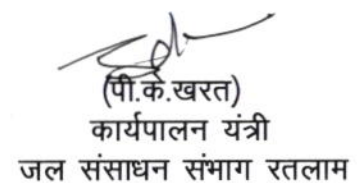 (पी.के.खरत)
कार्यपालन यंत्री
जल संसाधन संभाग रतलाम